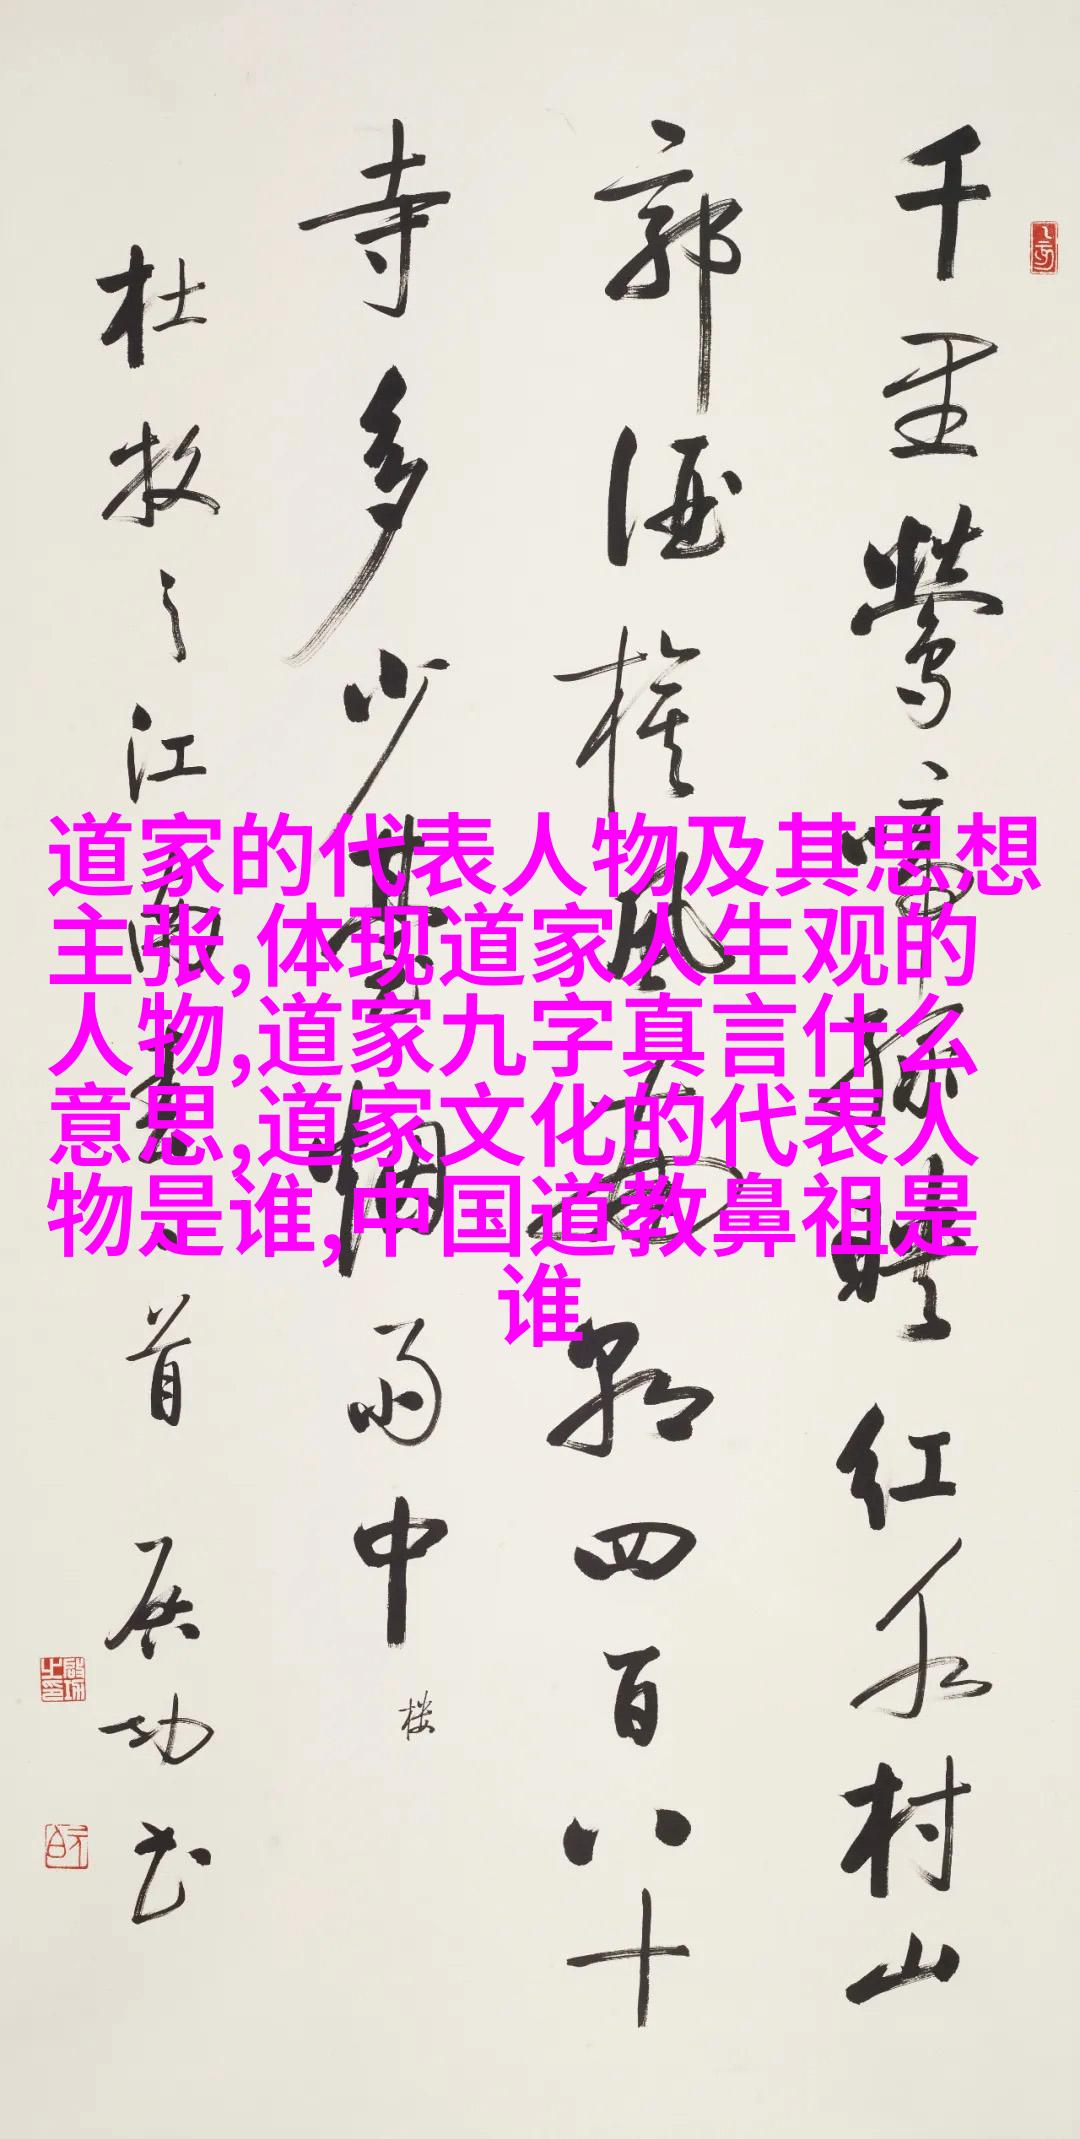 千里鶯啼綠映紅水村山
郭酒旗風南朝四百八十
寺多少臺烟雨中
楼
杜牧之江南春一首 启功书
道家的代表人物及其思想
主张,体现道家人生观的
人物,道家九字真言什么
意思,道家文化的代表人
物是谁,中国道教鼻祖是
谁